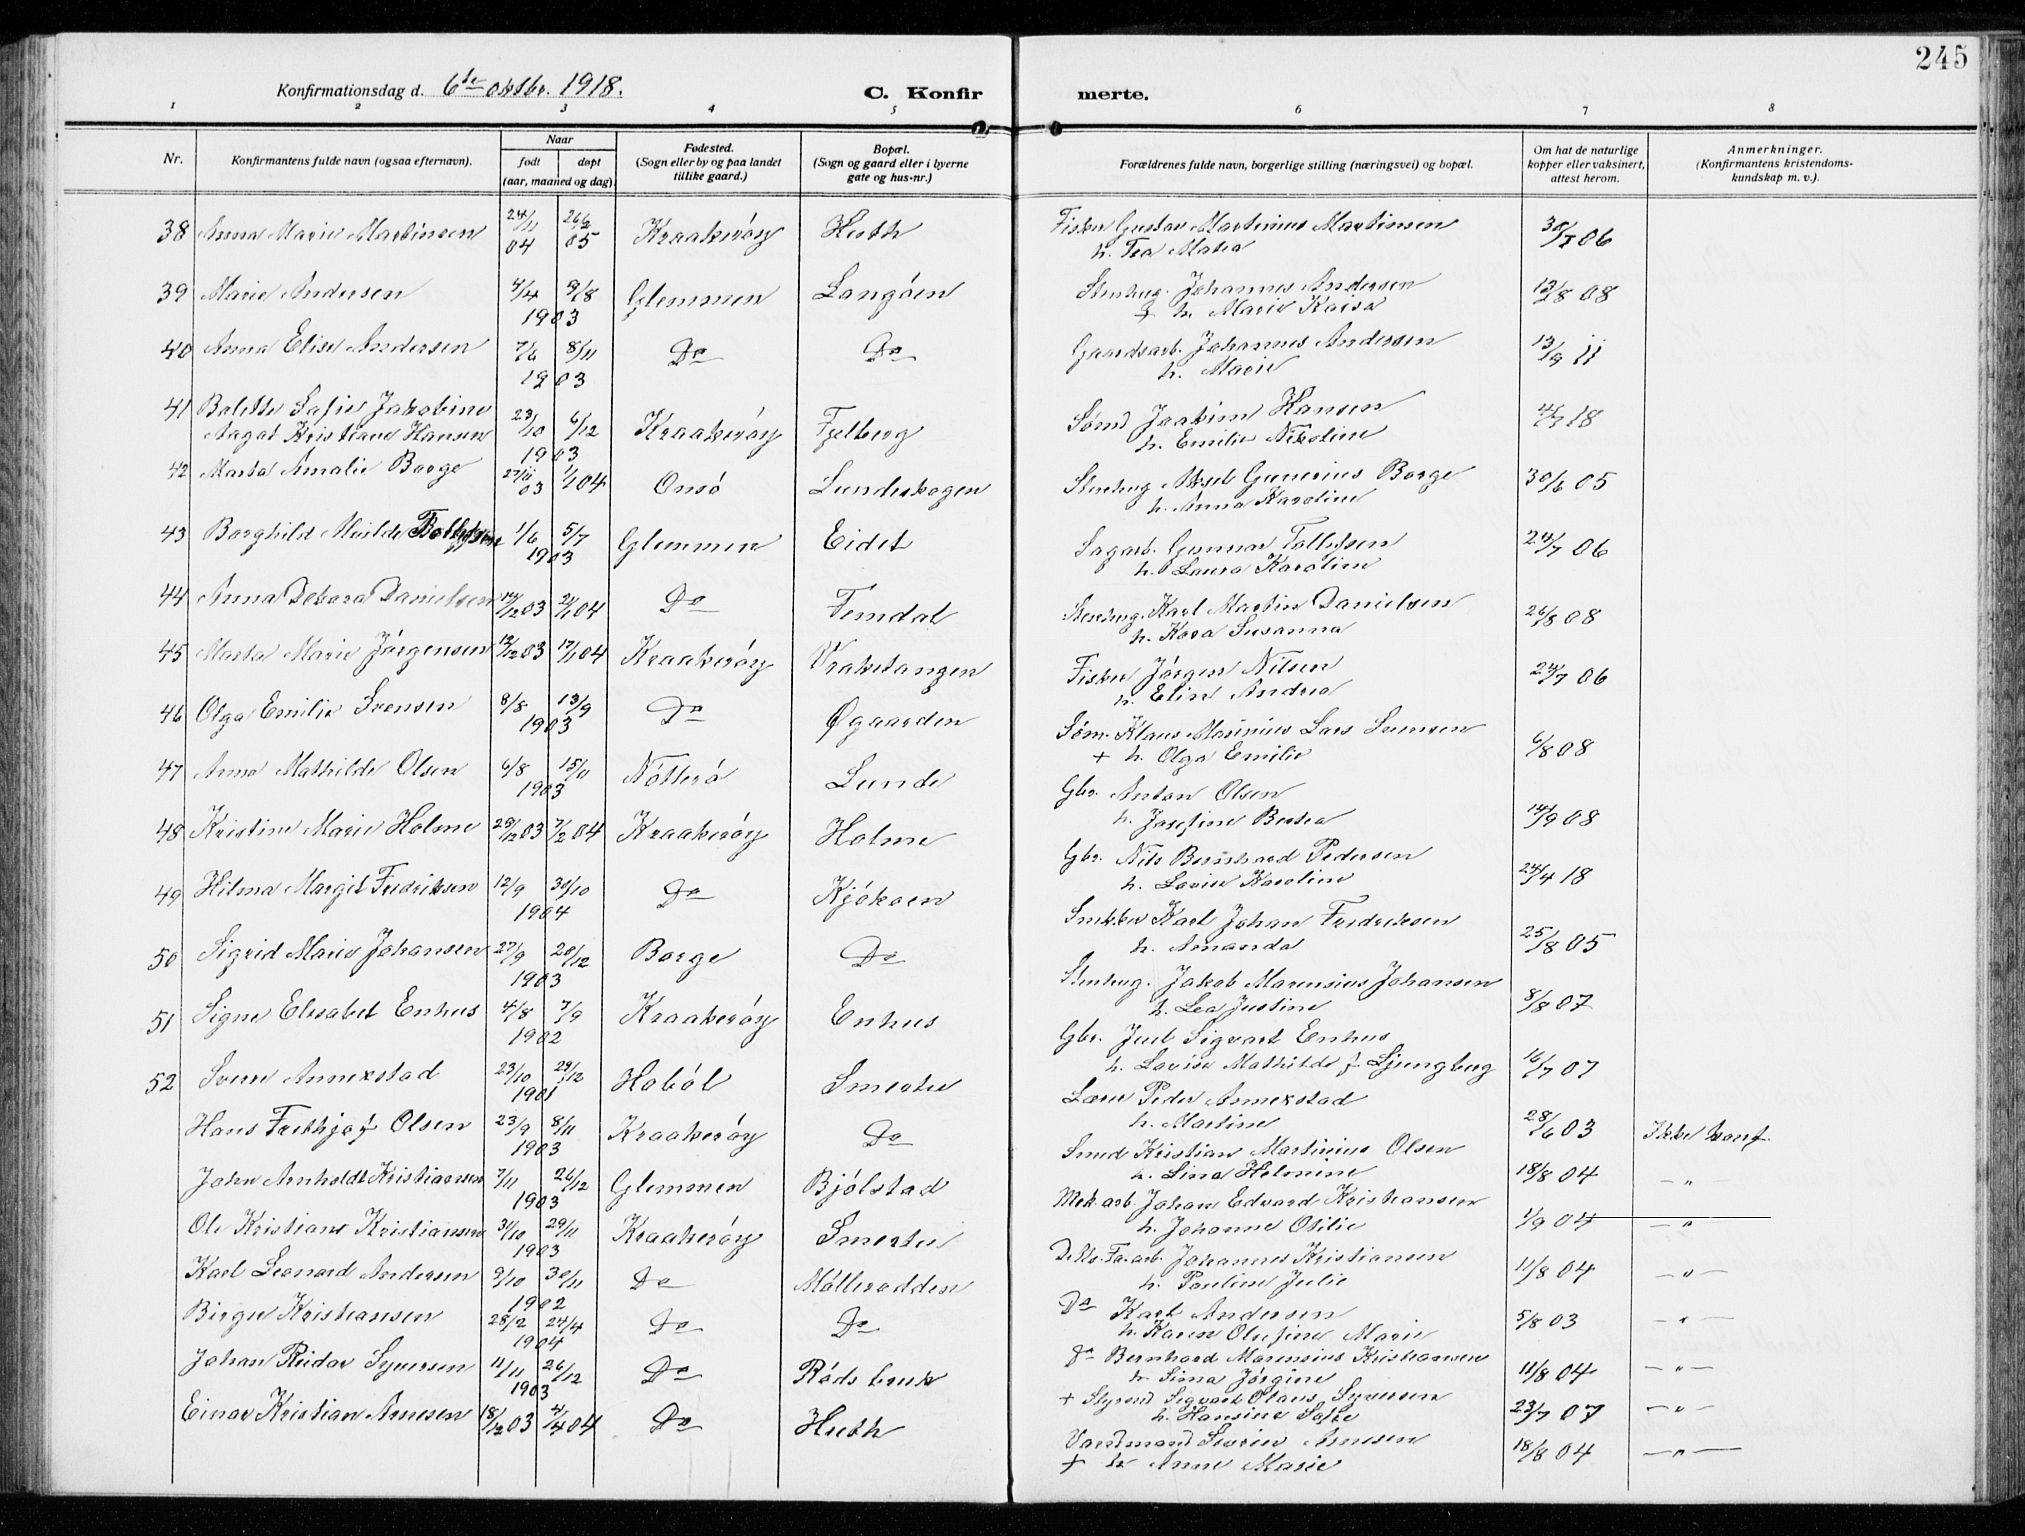 245
Konfirmationsdag d. 6te oktbr. 1918.
C. Konfirmerte.
1 2 3 4 5 6 7 8
Nr.
Konfirmantens fulde navn (ogsaa efternavn).
Naar
født døpt
(aar, maaned og dag).
Fødested.
(Sogn eller by og paa landet
tillike gaard.)
Bopæl.
(Sogn og gaard eller i byerne
gate og hus-nr.)
Forældrenes fulde navn, borgerlige stilling (næringsvei) og bopæl.
Om hat de naturlige
kopper eller vaksinert,
attest herom.
Anmerkninger.
(Konfirmantens kristendoms-
kundskap m. v.).
38 Anna Marie Martinsen 24/11 04 26/2 05 Kraakerøy Huth Fisker Gustav Martinius Martinsen 30/7 06
h. Tea Matea
39 Marie Andersen 4/4 9/8 1903 Glemmen Langøen Stenhug. Johannes Andersen 13/8 08
h. Marie Kaisa
40 Anna Elise Andersen 7/6 8/11 1903 Do Do Gaardsarb. Johannes Andersen 13/9 11
h. Marie
41 Bolette Sofie Jakobine
Aagot Kristiane Hansen 23/10 6/12 1903 Kraakerøy Fjelberg Sømd Joakim Hansen 4/7 18
h. Emilie Nikoline
42 Marta Amalie Borge 27/11 03 1/1 04 Onsø Lundeskogen Stenhug Aksel Gunerius Borge 30/6 05
h. Anna Karoline
43 Borghild Milde Tollefsen 1/6 5/7 1903 Glemmen Eidet Sagarb. Gunnar Tollefsen 24/7 06
h. Laura Karoline
44 Anna Debora Danielsen 14/12 03 24/1 04 Do Femdal Stenhug. Karl Martin Danielsen 26/8 08
h. Kora Susanna
45 Marta Marie Jørgensen 12/12 03 17/1 04 Kraakerøy Vraketangen Fisker Jørgen Nilsen 24/7 06
h. Elin Andrea
46 Olga Emilie Svensen 8/8 13/9 1903 Do Øgaarden Søm. Klaus Marinius Lars Svensen 6/8 08
+ h. Olga Emilie
47 Anna Mathilde Olsen 6/8 15/11 1903 Nøtterø Lunde Gbr. Anton Olsen 14/9 08
h. Josefine Bertea
48 Kristine Marie Holme 29/12 03 7/2 04 Kraakerøy Holme Gbr. Nils Bernhard Pedersen 24/4 18
h. Lovise Karoline
49 Hilma Margit Fredriksen 12/9 30/10 1904 Do Kjøkøen Snekker Karl Johan Fredriksen 25/8 05
h. Amanda
50 Sigrid Marie Johansen 27/9 20/12 1903 Borge Do Stenhug. Jakob Marensius Johansen 8/8 07
h. Lea Justine
51 Signe Elisabet Enhus 4/8 7/9 1902 Kraakerøy Enhus Gbr. Juel Sigvart Enhus 16/7 07
h. Lovise Mathilde f. Ljungberg
52 Sverre Annekstad 23/10 29/12 1901 Hobøl Smertu Lærer Peder Annekstad 28/6 03 Ikke konf.
h. Martine
Hans Fritthjof Olsen 23/9 8/11 1903 Kraakerøy Do Smed Kristian Martinius Olsen 18/8 04 — " —
h. Lina Helmine
John Arnholdt Kristiansen 7/11 26/12 1903 Glemmen Bjølstad Mek. arb. Johan Edvard Kristiansen 1/9 04 — " —
h. Johanne Otilie
Ole Kristian Kristiansen 31/10 29/11 1903 Kraakerøy Smertu Johannes Kristiansen 11/8 04 — " —
h. Pauline Julie
Karl Leonard Andersen 9/10 30/11 1902 Do Mølleradden Do Karl Andersen 5/8 03 — " —
h. Karen Olufine Marie
Birger Kristiansen 28/2 24/4 1904 Do Do Do Bernhard Marensius Kristiansen 11/8 04 — " —
h. Sima Jørgine
Johan Reidar Syversen 11/11 26/12 1903 Do Røds bruk + Styrmd Sigvart Olaus Syversen 23/7 07 — " —
h. Hansine Sofie
Einar Kristian Arnesen 18/12 03 4/4 04 Do Huth Vandmand Severin Arnesen 18/8 04 — " —
+ h Anne Marie